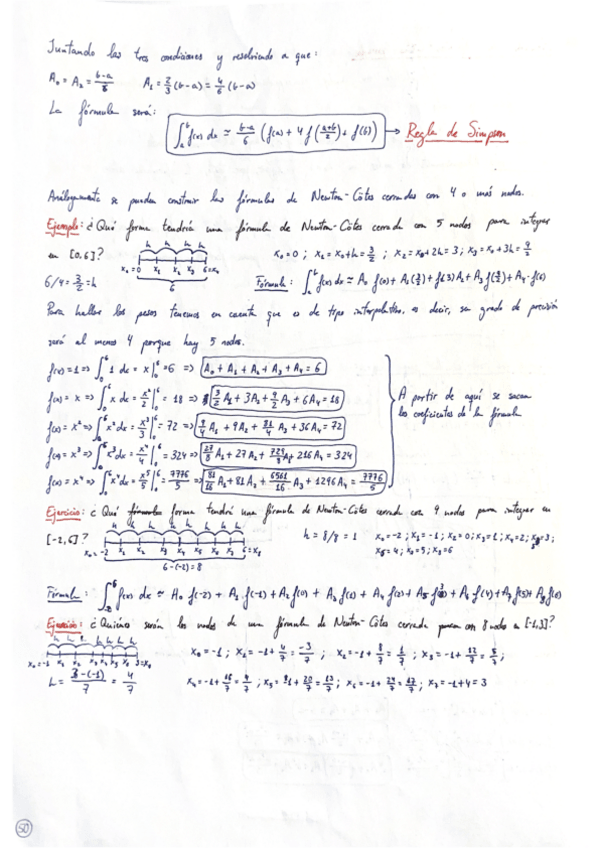 Juntando las tres condiciones y resolviendo a que:
A₀ = A₂ = (b-a)/8 A₁ = 2/3 (b-a) = 4/6 (b-a)
La fórmula será:
∫ₐᵇ f(x) dx ≃ (b-a)/6 (f(a) + 4 f((a+b)/2) + f(b)) → Regla de Simpson
Análogamente se pueden construir las fórmulas de Newton-Côtes cerradas con 4 o más nodos.
Ejemplo: ¿Qué forma tendría una fórmula de Newton-Côtes cerrada con 5 nodos para integrar
en [0,6]? h h h h x₀=0 ; x₁=x₀+h=3/2 ; x₂=x₀+2h=3 ; x₃=x₀+3h=9/2
x₀=0 x₁ x₂ x₃ 6=x₄
6
6/4=3/2=h Fórmula: ∫ₐᵇ f(x) dx ≃ A₀ f(0) + A₁(3/2) + f(3)A₂ + A₃ f(9/2) + A₄·f(6)
Para hallar los pesos tenemos en cuenta que es de tipo interpolativo, es decir, su grado de precisión
será al menos 4 porque hay 5 nodos.
f(x)=1 => ∫₀⁶ 1 dx = x|₀⁶ =6 => A₀ + A₁ + A₂ + A₃ + A₄ = 6
f(x) = x => ∫₀⁶ x dx = x²/2|₀⁶ = 18 => 3/2 A₁ + 3A₂ + 9/2 A₃ + 6A₄ = 18
A partir de aquí se sacan
los coeficientes de la fórmula
f(x) = x² => ∫₀⁶ x² dx = x³/3|₀⁶ = 72 => 9/4 A₁ + 9A₂ + 81/4 A₃ + 36A₄ = 72
f(x) = x³ => ∫₀⁶ x³ dx = x⁴/4|₀⁶ = 324 => 27/8 A₁ + 27A₂ + 729/8 A₃ + 216A₄ = 324
f(x) = x⁴ => ∫₀⁶ x⁴ dx = x⁵/5|₀⁶ = 7776/5 => 81/16 A₁ + 81A₂ + 6561/16 A₃ + 1296A₄ = 7776/5
Ejercicio: ¿Qué forma tendrá una fórmula de Newton-Côtes cerrada con 9 nodos para integrar en
[-2,6]? h h h h h h h h h = 8/8 = 1 x₀=-2 ; x₁=-1 ; x₂=0 ; x₃=1 ; x₄=2 ; x₅=3 ;
x₀=-2 x₁ x₂ x₃ x₄ x₅ x₆ x₇ 6=x₈ x₆=4 ; x₇=5 ; x₈=6
6-(-2)=8
Fórmula: ∫₋₂⁶ f(x) dx ≃ A₀ f(-2) + A₁ f(-1) + A₂ f(0) + A₃ f(1) + A₄ f(2) + A₅ f(3) + A₆ f(4) + A₇ f(5) + A₈ f(6)
Ejercicio: ¿Quiénes serán los nodos de una fórmula de Newton-Côtes cerrada con 8 nodos en [-1,3]?
x₀=-1 x₁ x₂ x₃ x₄ x₅ x₆ 3=x₇
x₀=-1 ; x₁=-1+4/7=-3/7 ; x₂=-1+8/7=1/7 ; x₃=-1+12/7=5/7 ;
h = (3-(-1))/7 = 4/7 x₄=-1+16/7=9/7 ; x₅=-1+20/7=13/7 ; x₆=-1+24/7=17/7 ; x₇=-1+4=3
50